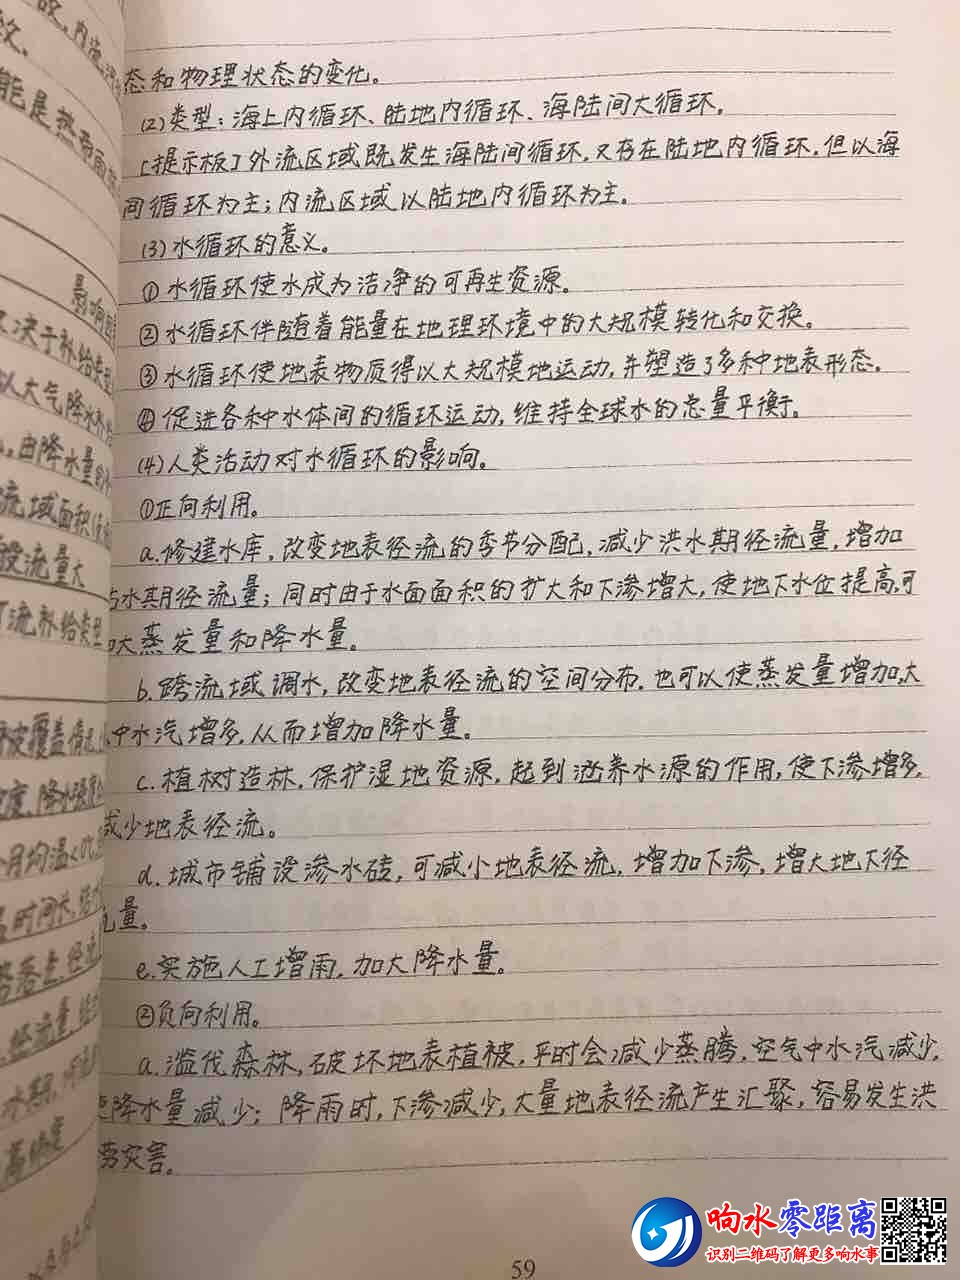 态和物理状态的变化。
(2)类型：海上内循环、陆地内循环、海陆间大循环。
[提示板]外流区域既发生海陆间循环，又存在陆地内循环，但以海
间循环为主；内流区域以陆地内循环为主。
(3)水循环的意义。
①水循环使水成为洁净的可再生资源。
②水循环伴随着能量在地理环境中的大规模转化和交换。
③水循环使地表物质得以大规模地运动，并塑造了多种地表形态。
④促进各种水体间的循环运动，维持全球水的总量平衡。
(4)人类活动对水循环的影响。
①正向利用。
a.修建水库，改变地表径流的季节分配，减少洪水期径流量，增加
水期径流量；同时由于水面面积的扩大和下渗增大，使地下水位提高，可
大蒸发量和降水量。
b.跨流域调水，改变地表径流的空间分布，也可以使蒸发量增加，大
中水汽增多，从而增加降水量。
c.植树造林，保护湿地资源，起到涵养水源的作用，使下渗增多，
减少地表径流。
d.城市铺设渗水砖，可减小地表径流，增加下渗，增大地下径
量。
e.实施人工增雨，加大降水量。
②负向利用。
a.滥伐森林，破坏地表植被，平时会减少蒸腾，空气中水汽减少，
降水量减少；降雨时，下渗减少，大量地表径流产生汇聚，容易发生洪
涝灾害。
59
能是热带雨
影响因
决于补给类型
以大气降水补给
由降水量
流域面积
流量大
流补给类型
被覆盖情况
度、降水强度
月均温<0℃
时间长
径流量
响水零距离
识别二维码了解更多响水事